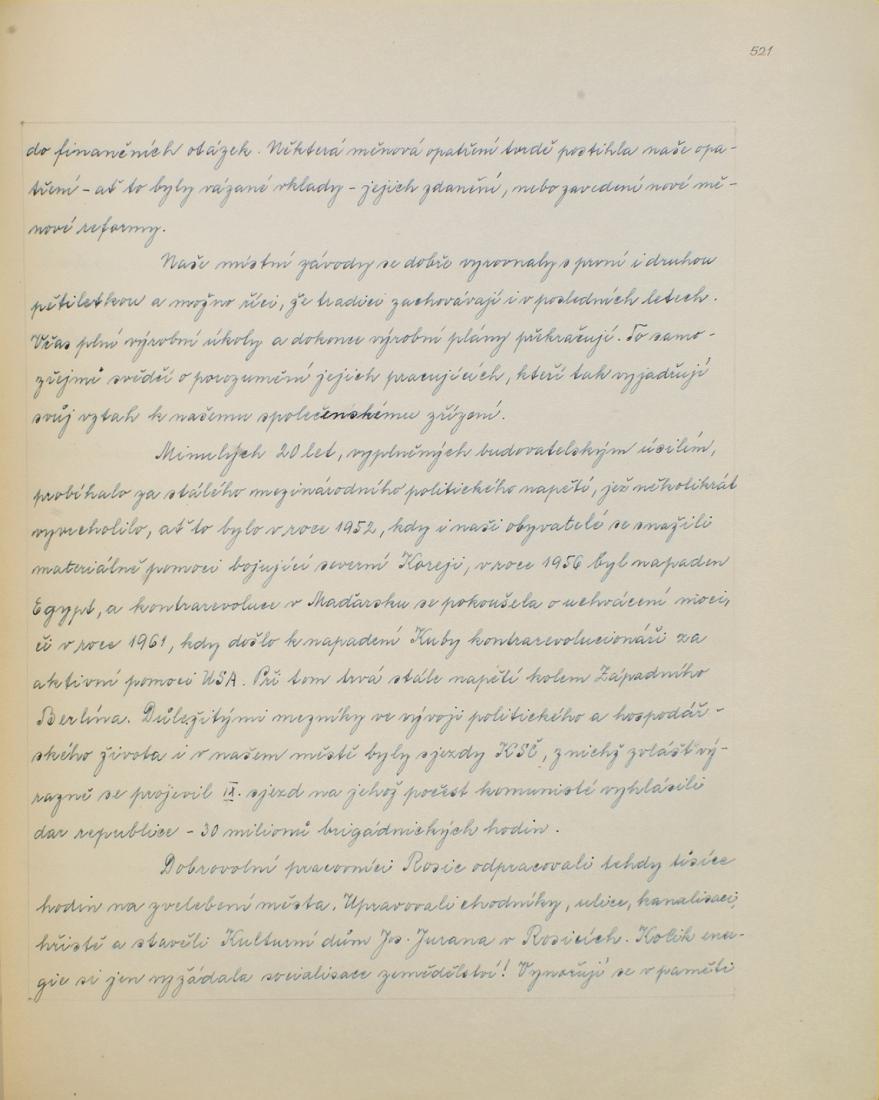 521
do finančních otázek. Některá měnová opatření tvrdě postihla naše opa-
tření - ať to byly vázané vklady - jejich zdanění, nebo zavedení nové mě-
nové reformy.
Naše místní závody se dobře vyrovnaly s první i druhou
pětiletkou a možno říci, že tradici zachovávají i v posledních letech.
Včas plní výrobní úkoly a dokonce výrobní plány překračují. To samo-
zřejmě svědčí o porozumění jejich pracujících, kteří tak vyjadřují
svůj vztah k našemu společenskému zřízení.
Minulých 20 let, vyplněných budovatelským úsilím,
probíhalo za stálého mezinárodního politického napětí, jež několikrát
vyvrcholilo, ať to bylo v roce 1952, kdy i naši obyvatelé se snažili
materiálně pomoci bojující severní Koreji, v roce 1956 byl napaden
Egypt, a kontrarevoluce v Maďarsku se pokoušela o uchvácení moci,
či v roce 1961, kdy došlo k napadení Kuby kontrarevolucionáři za
aktivní pomoci USA. Při tom trvá stále napětí kolem Západního
Berlína. Důležitými mezníky ve vývoji politického a hospodář-
ského života i v našem městě byly sjezdy KSČ, z nichž zvlášť vý-
razně se projevil IX. sjezd na jehož počest komunisté vyhlásili
dar republice - 30 milionů brigádnických hodin.
Dobrovolní pracovníci Rosic odpracovali tehdy tisíce
hodin na zvelebení města. Upravovali chodníky, ulice, kanalisaci,
hřiště a stavěli Kulturní dům Jos. Jurana v Rosicích. Kolik ener-
gie si jen vyžádala socialisace zemědělství! Vynořují se v paměti